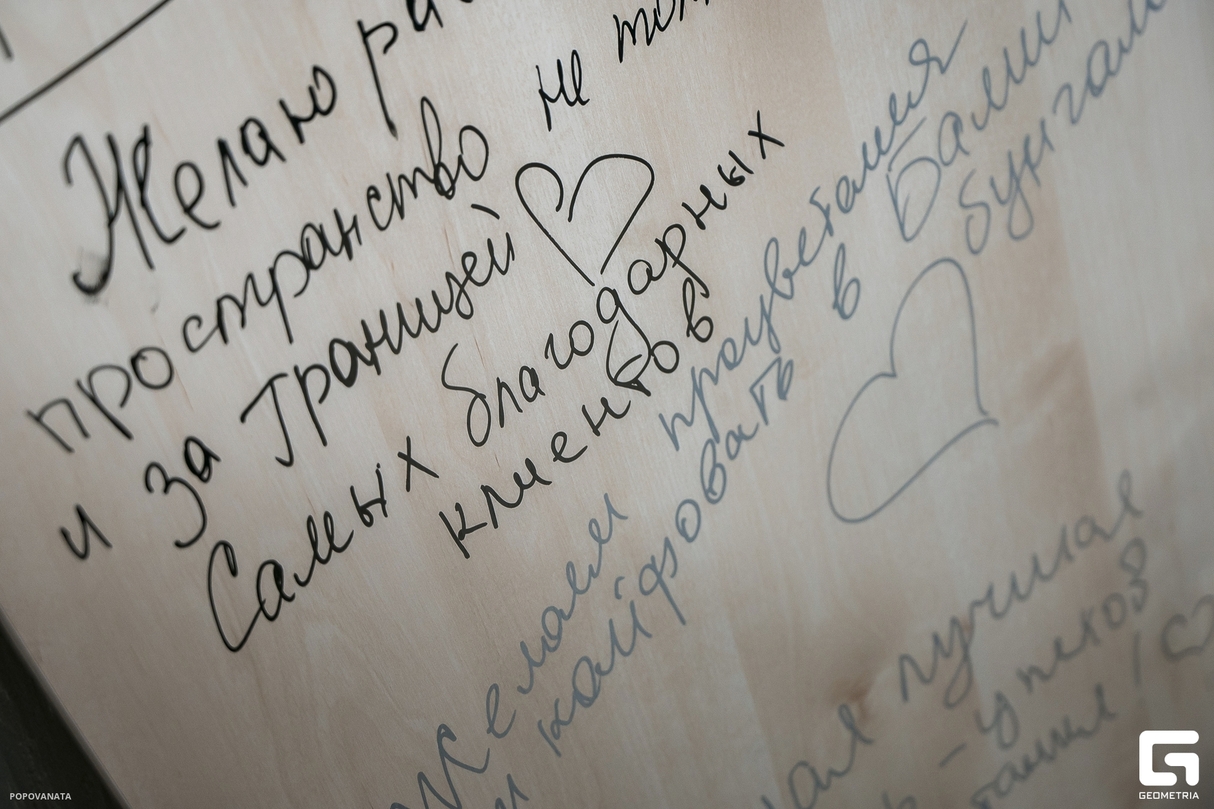 Желаю
пространство не
и за границей
Самых благодарных
клиентов
Желаем процветания
и кайфовать в Бали
бунгало
лучшая
успехов
POPOVANATA
GEOMETRIA